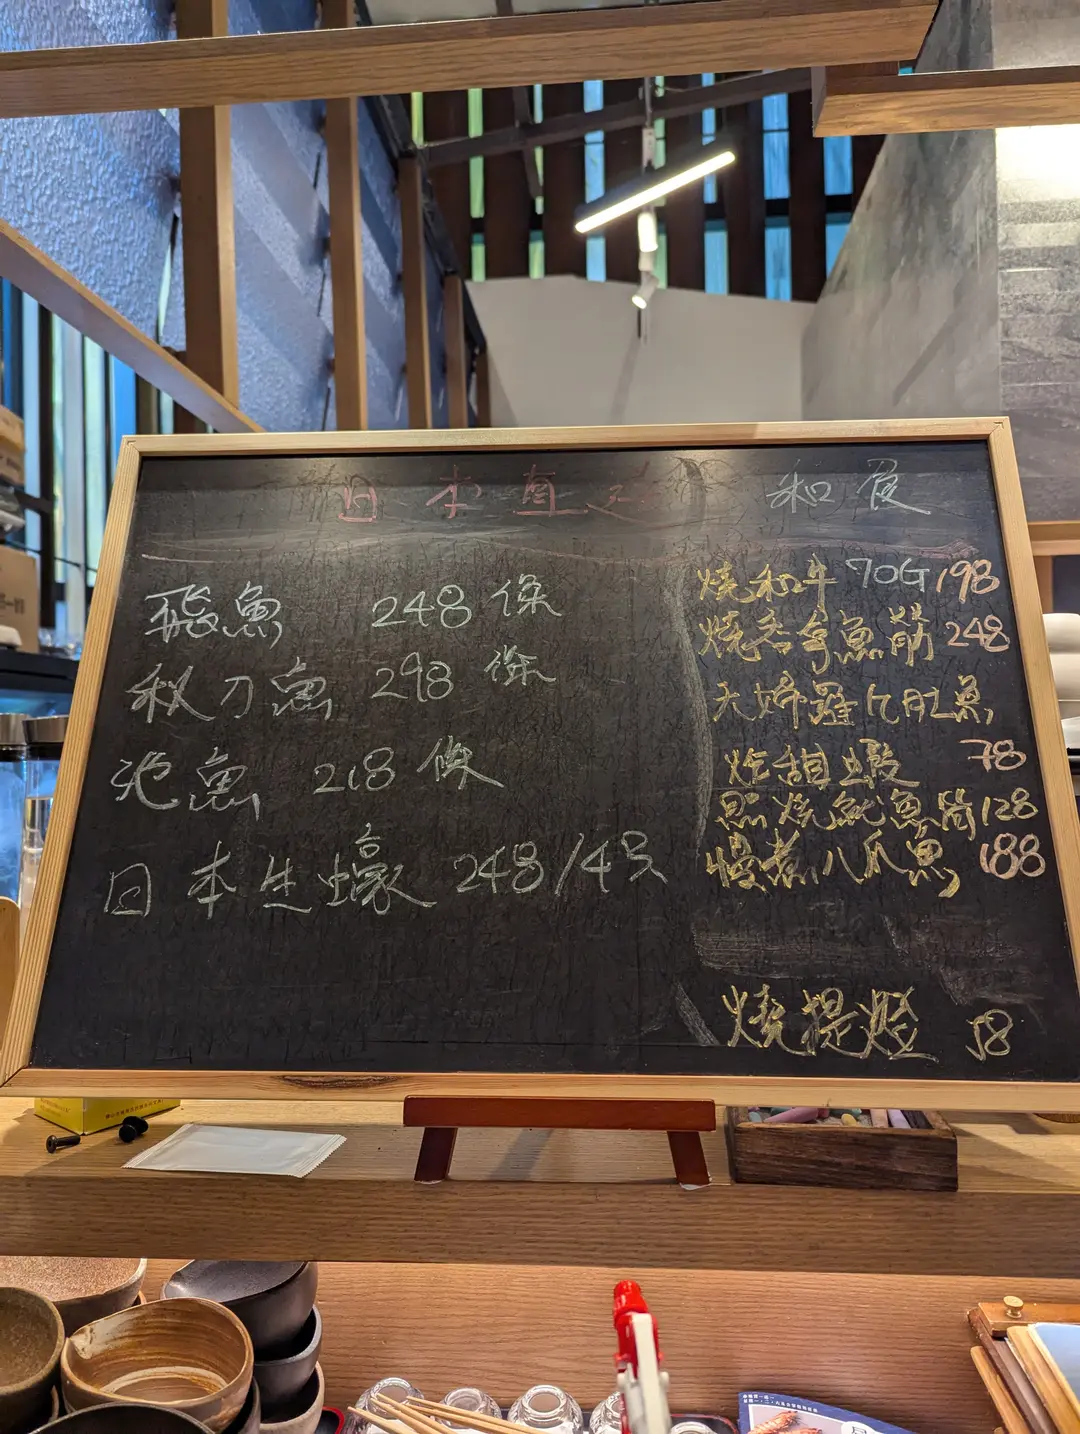 日本直送
和食
飛魚 248 條
秋刀魚 298 條
池魚 218 條
日本生蠔 248/4只
燒和牛 70G 198
燒吞拿魚筋 248
天婦羅
魚
炸甜蝦 78
照燒魷魚筒 128
慢煮八爪魚 188
燒提燈 58